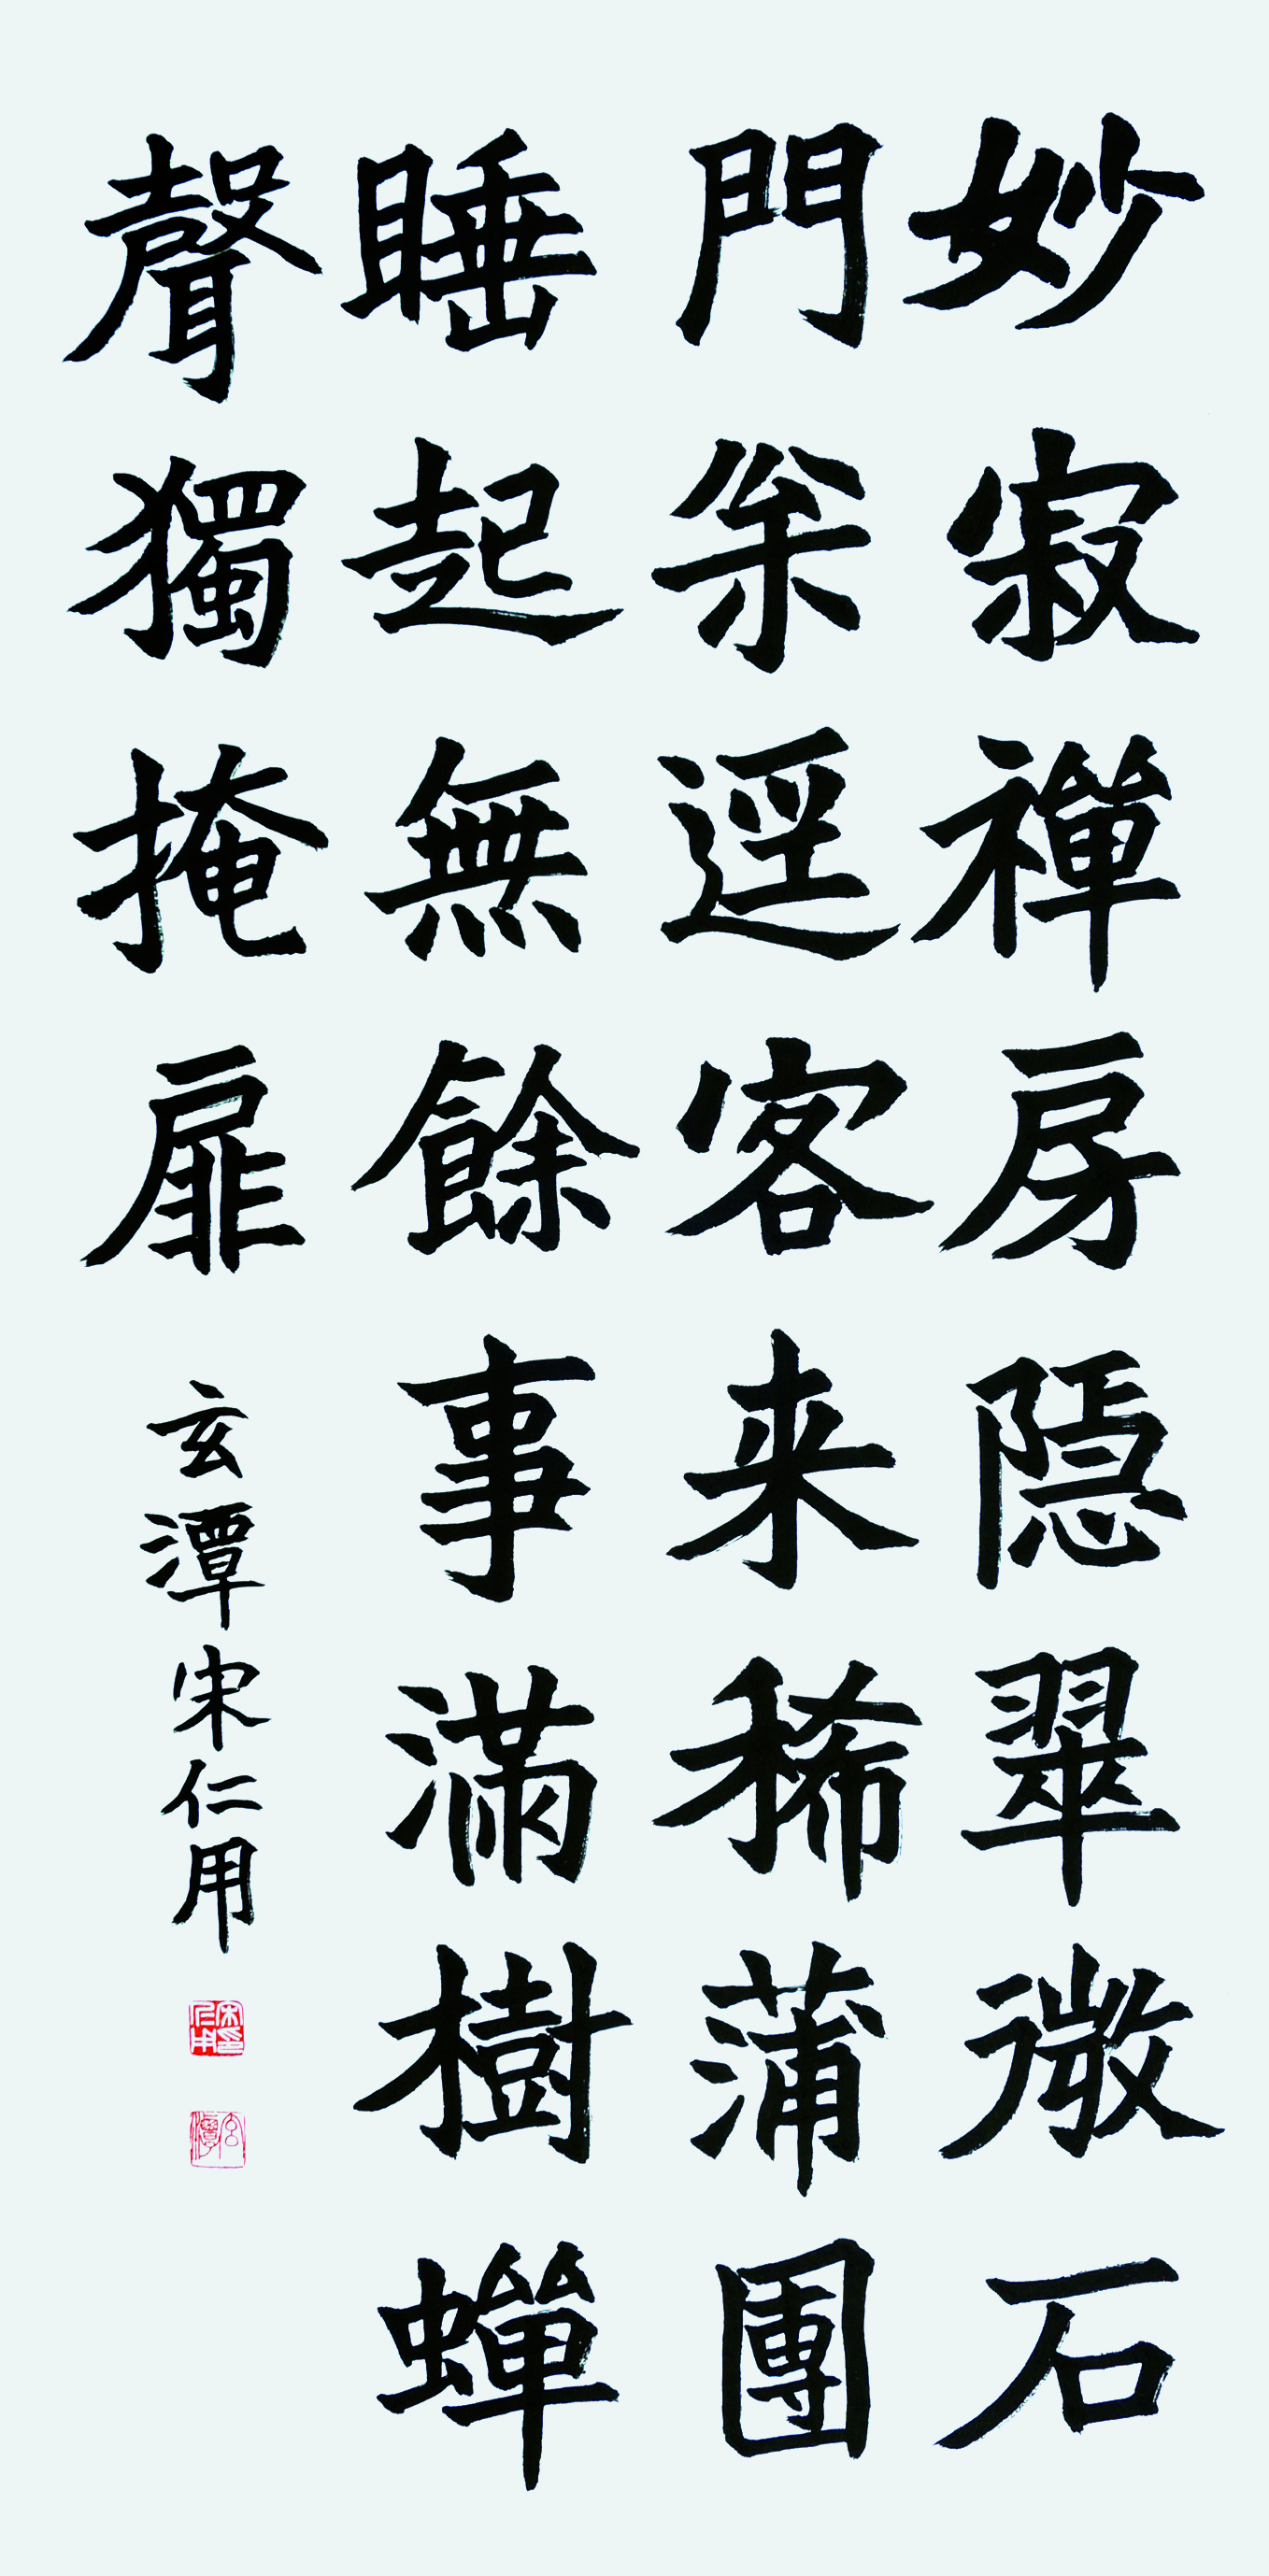 妙寂禪房隠翠微石
門逕客来稀蒲團
睡起無餘事滿樹蟬
聲獨掩扉
玄潭宋仁用
宋仁用印
玄潭